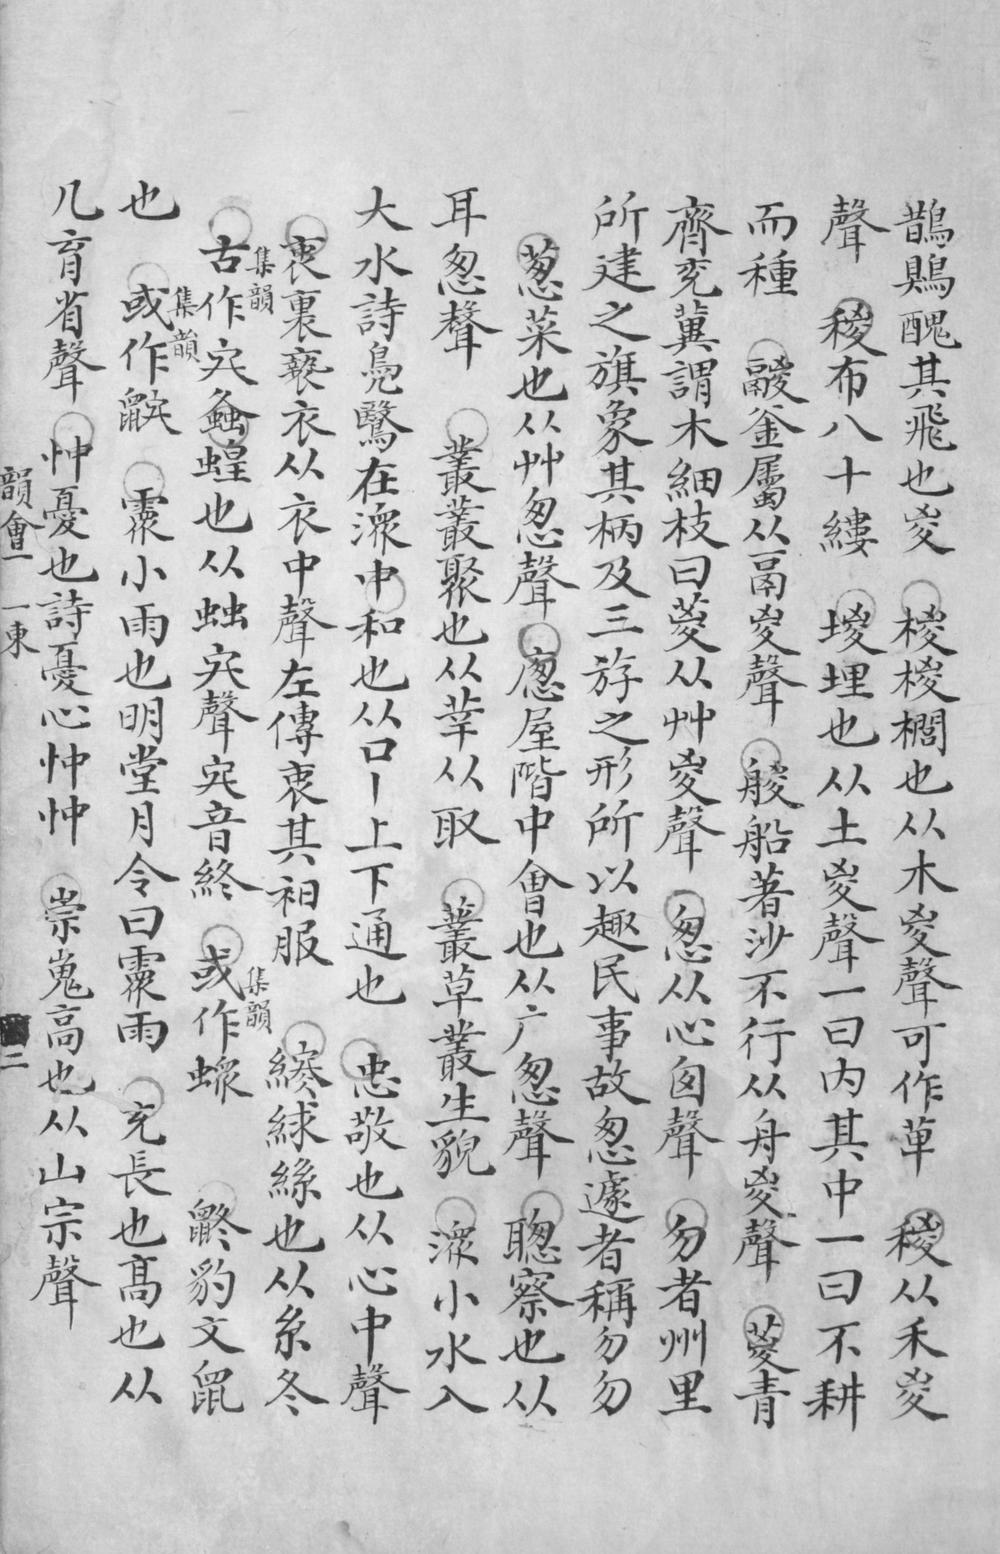 鵲鶪醜其飛也㚇　椶椶櫚也从木㚇聲可作萆　稯从禾㚇
聲　稯布八十縷　堫埋也从土㚇聲一曰内其中一曰不耕
而種　鬷釜屬从鬲㚇聲　艐船著沙不行从舟㚇聲　葼青
齊兖冀謂木細枝曰葼从艸㚇聲　怱从心囪聲　勿者州里
所建之旗象其柄及三斿之形所以趣民事故怱遽者稱勿勿
蔥菜也从艸怱聲　廖屋階中會也从广怱聲　聰察也从
耳怱聲　叢叢聚也从丵从取　叢草叢生貌　潀小水入
大水詩鳧鷖在潀中和也从口丨上下通也　忠敬也从心中聲
衷裏褻衣从衣中聲左傳衷其衵服　緵絿絲也从糸冬
古作宊集韻螽蝗也从䖵宊聲宊音終　或作螽集韻　鼨豹文鼠
也　或作鼨集韻　霥小雨也明堂月令曰霥雨　充長也高也从
儿育省聲　忡憂也詩憂心忡忡　崇嵬高也从山宗聲
韻會一　一東　二